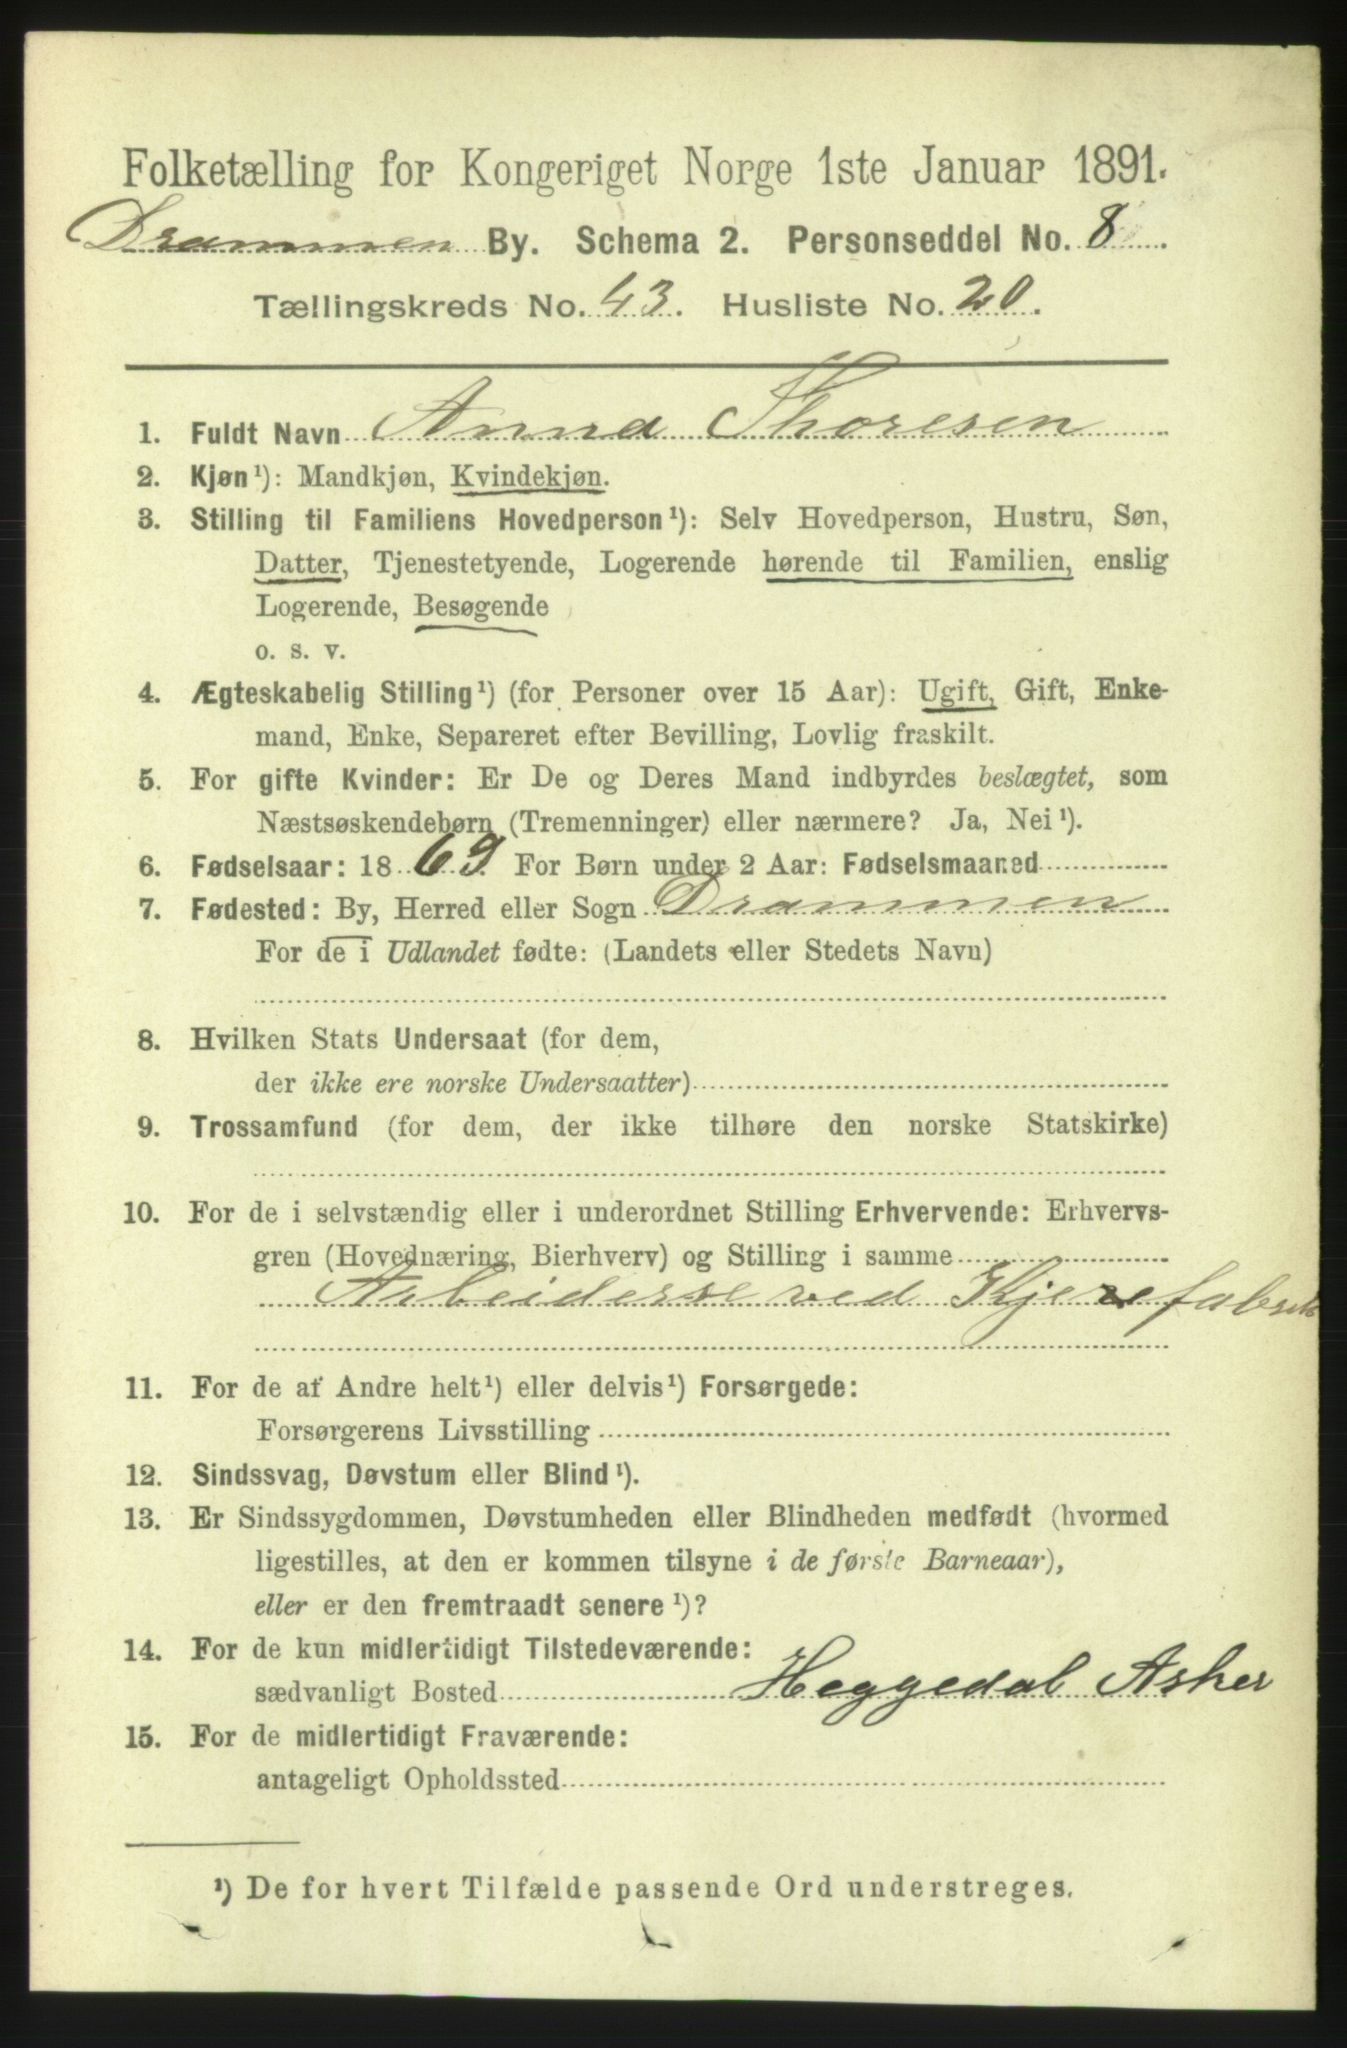 Folketælling for Kongeriget Norge 1ste Januar 1891.
Drammen By. Schema 2. Personseddel No. 8.
Tællingskreds No. 43. Husliste No. 20.
1. Fuldt Navn Anna Thoresen
2. Kjøn¹): Mandkjøn, Kvindekjøn.
3. Stilling til Familiens Hovedperson¹): Selv Hovedperson, Hustru, Søn,
Datter, Tjenestetyende, Logerende hørende til Familien, enslig
Logerende, Besøgende
o. s. v.
4. Ægteskabelig Stilling¹) (for Personer over 15 Aar): Ugift, Gift, Enke-
mand, Enke, Separeret efter Bevilling, Lovlig fraskilt.
5. For gifte Kvinder: Er De og Deres Mand indbyrdes beslægtet, som
Næstsøskendebørn (Tremenninger) eller nærmere? Ja, Nei¹).
6. Fødselsaar: 1869. For Børn under 2 Aar: Fødselsmaaned
7. Fødested: By, Herred eller Sogn Drammen
For de i Udlandet fødte: (Landets eller Stedets Navn)
8. Hvilken Stats Undersaat (for dem,
der ikke ere norske Undersaatter)
9. Trossamfund (for dem, der ikke tilhøre den norske Statskirke)
10. For de i selvstændig eller i underordnet Stilling Erhvervende: Erhvervs-
gren (Hovednæring, Bierhverv) og Stilling i samme
Arbeiderse ved
11. For de af Andre helt¹) eller delvis¹) Forsørgede:
Forsørgerens Livsstilling
12. Sindssvag, Døvstum eller Blind¹).
13. Er Sindssygdommen, Døvstumheden eller Blindheden medfødt (hvormed
ligestilles, at den er kommen tilsyne i de første Barneaar),
eller er den fremtraadt senere¹)?
14. For de kun midlertidigt Tilstedeværende:
sædvanligt Bosted Heggedal Asker
15. For de midlertidigt Fraværende:
antageligt Opholdssted
¹) De for hvert Tilfælde passende Ord understreges.